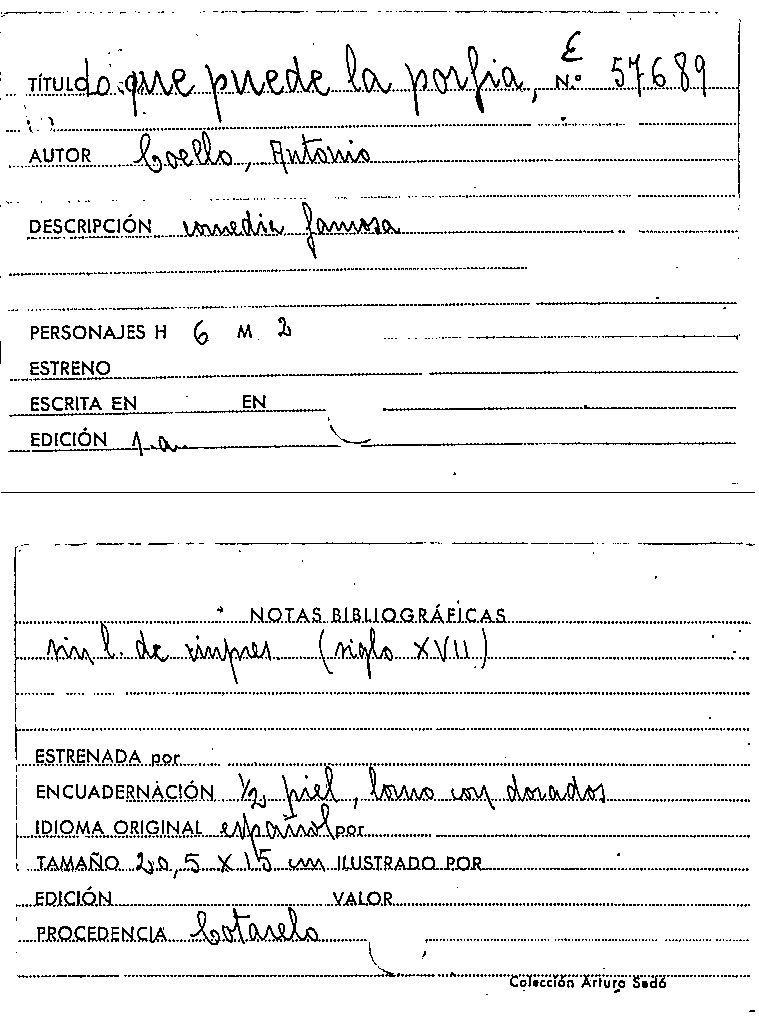 TÍTULO Lo que puede la porfia, E N.º 57689
AUTOR Coello, Antonio
DESCRIPCIÓN comedia famosa
PERSONAJES H 6 M 2
ESTRENO
ESCRITA EN EN
EDICIÓN 1.a
NOTAS BIBLIOGRÁFICAS
sin l. de impres. (siglo XVII)
ESTRENADA por
ENCUADERNACIÓN ½ piel, lomo con dorados
IDIOMA ORIGINAL español por
TAMAÑO 20,5 X 15 cm ILUSTRADO POR
EDICIÓN VALOR
PROCEDENCIA Cotarelo
Colección Arturo Sedó